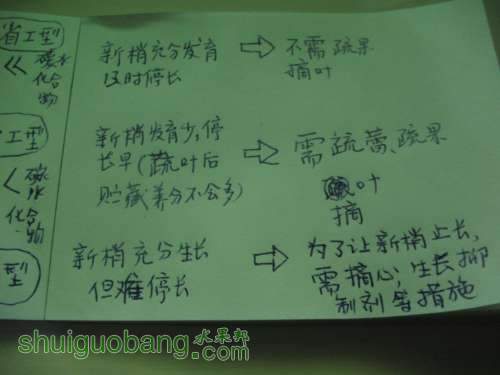 省工型
<< 碳水
化合
物
新梢充分发育
及时停长
⇨
不需疏果
摘叶
工型
< 碳
水
化合
物
新梢发育少,停
长早(蔬叶后
贮藏养分不会多)
⇨
需疏蕾、疏果
叶
摘
型
新梢充分生长
但难停长
⇨
为了让新梢止长,
需摘心,生长抑
制剂等措施
水果邦
shuiguobang.com